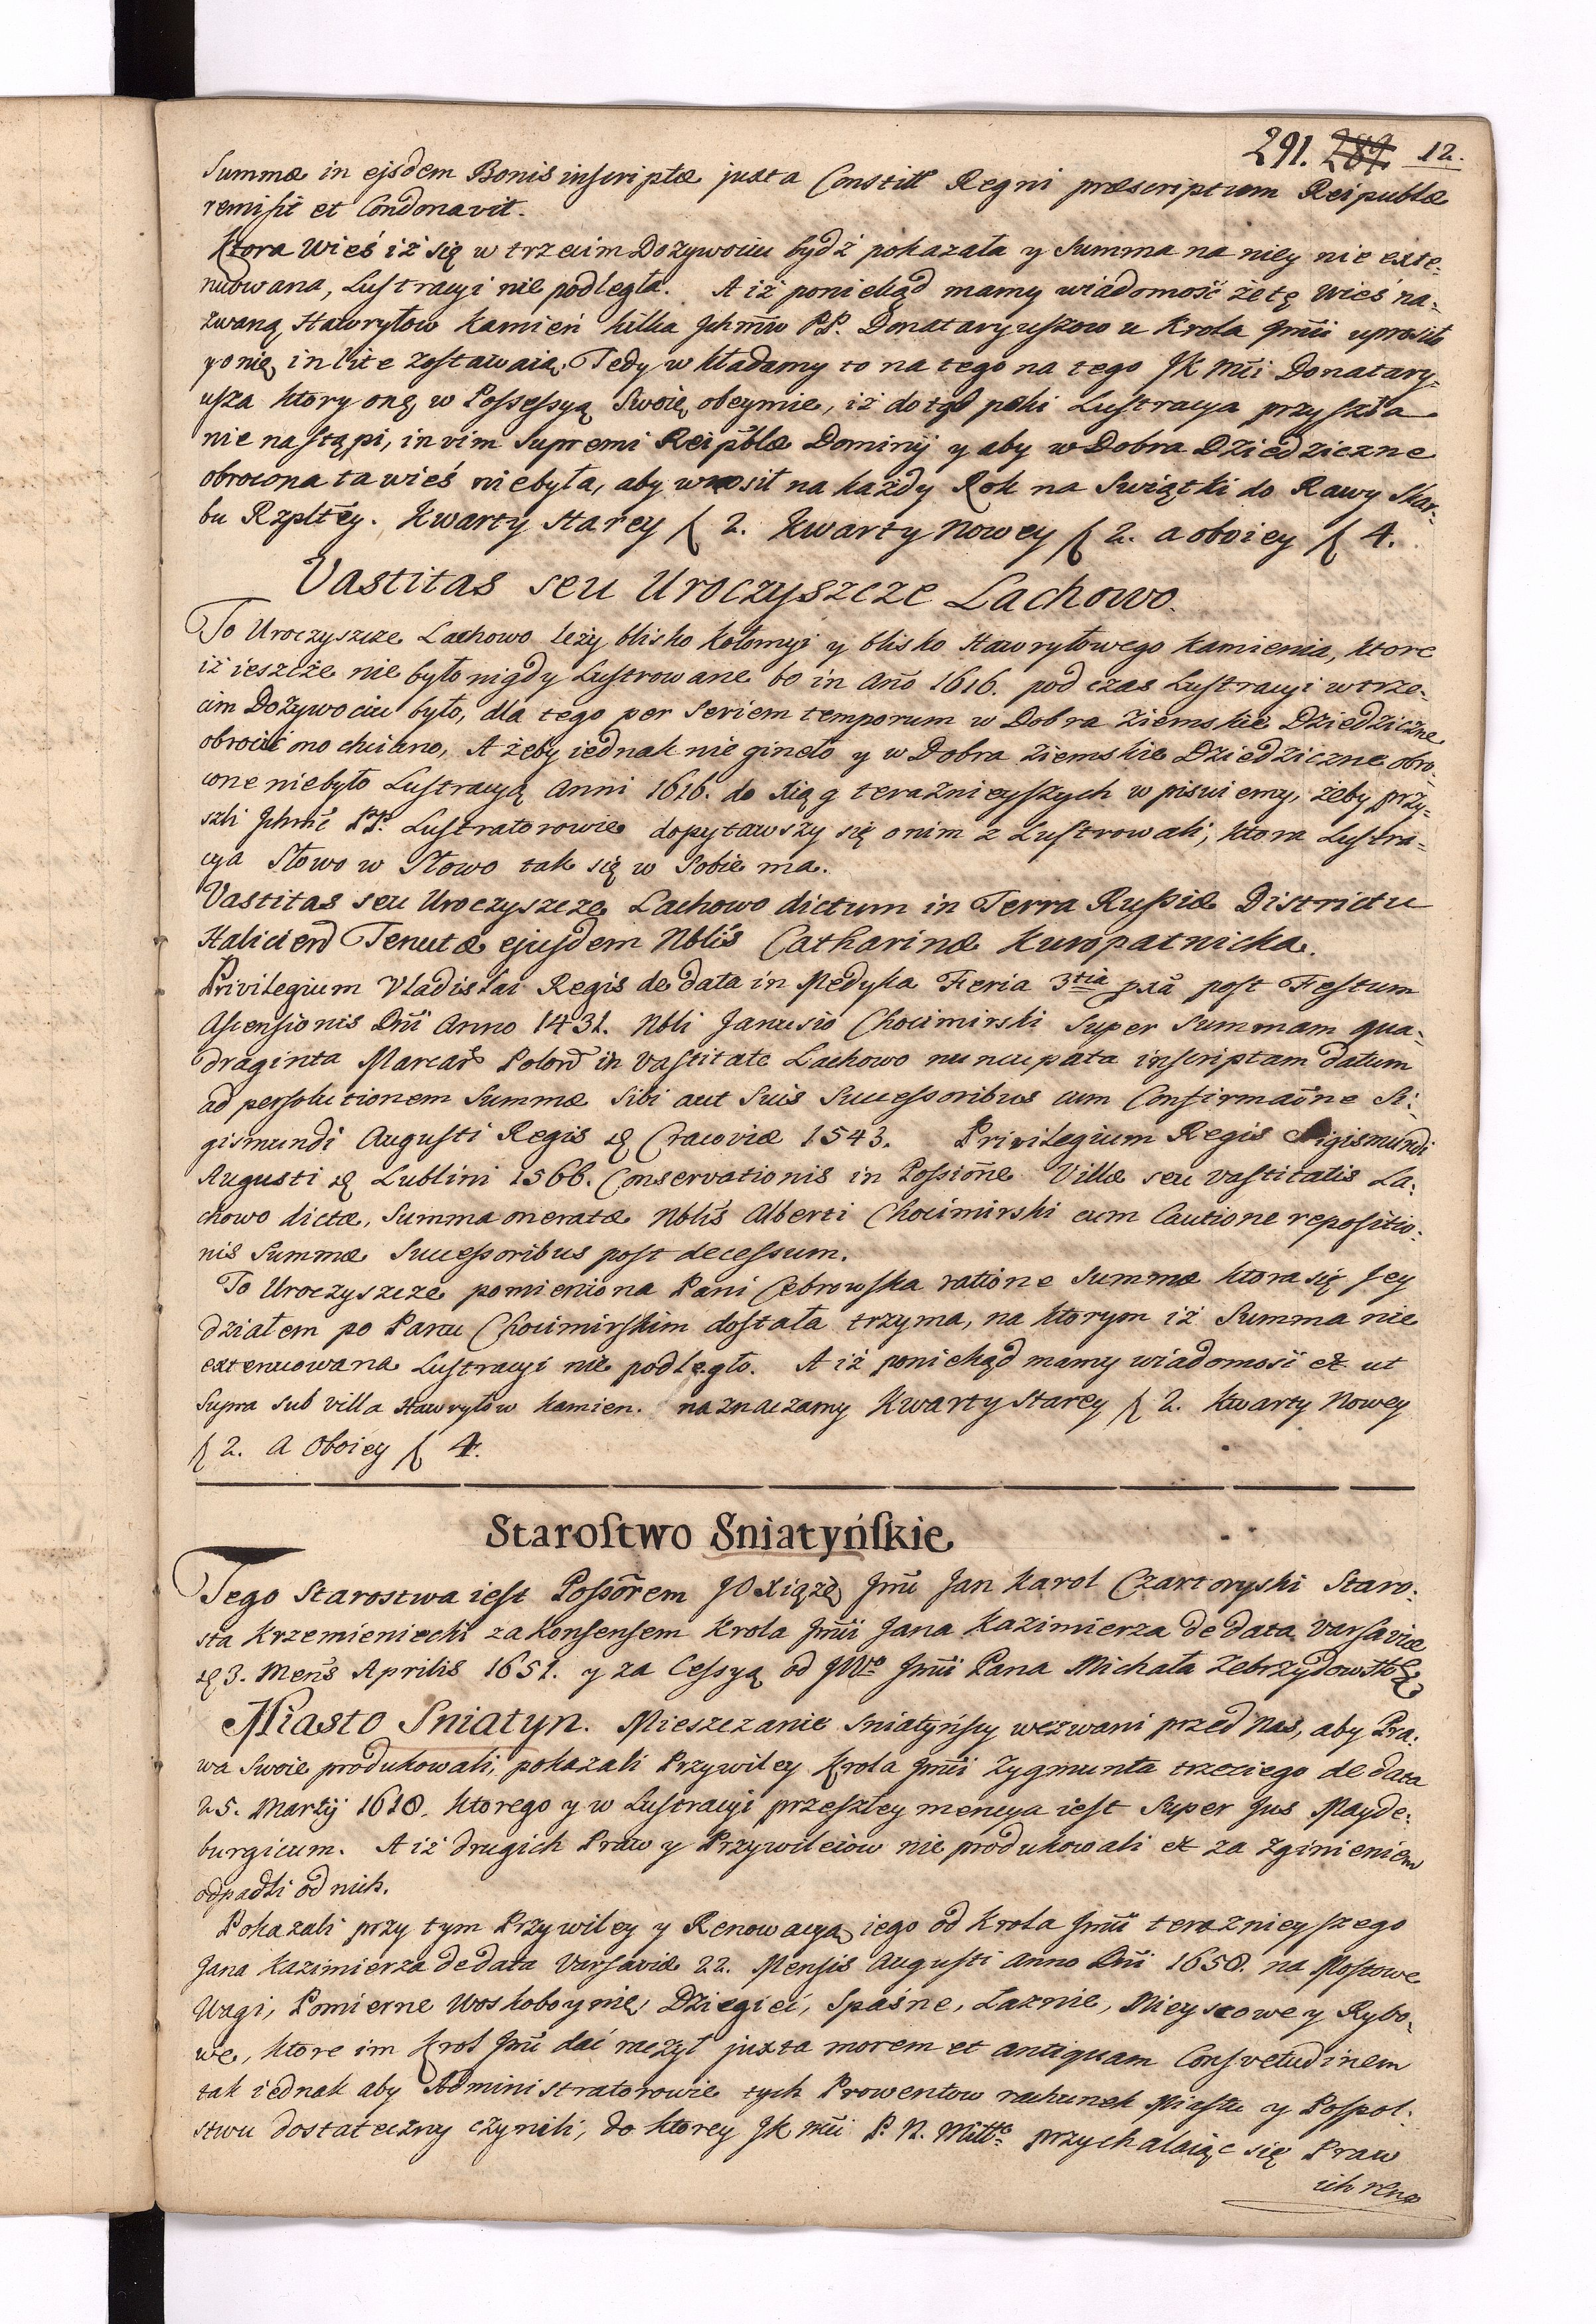 291. 287 12.
Summæ in ejsdem Bonis inscriptæ juxta Constitt Regni præscriptum Reipublæ
remisit et Condonavit.
Ktora Wieś iż się w trzecim Dozywociu bydź pokazała y Summa na niey nie exte-
nuowana, Lustracyi nie podległa. A iż poniekąd mamy wiadomość że tę Wieś na-
zwaną Hawryłow Kamień kilka Jchmw PP. Donataryuszow u Krola Jmci uprosiło
y o nię in lite zostawaią, Tedy w kładamy to na tego na tego JK Mci Donatary-
usza ktory onę w Possessyą Swoię obeymie, iż do tąd poki Lustracya przyszła
nie nastąpi, in vim Supremi Reipblæ Dominij y aby w Dobra Dziedziczne
obrocona ta wieś niebyła, aby wnosił na kazdy Rok na Swiątki do Rawy Skar-
bu Rzpltey. Kwarty Starey f 2. Kwarty Nowey f 2. a oboiey f 4.
Vastitas seu Uroczyszcze Lachowo.
To Uroczyszcze Lachowo leży blisko Kołomyi y blisko Hawryłowego Kamienia, ktore
iż ieszcze nie było nigdy Lustrowane bo in Ano 1616. pod czas Lustracyi w trze-
cim Dożywociu było, dla tego per Seriem temporum w Dobra Ziemskie Dziedziczne
obrocić ono chciano, A żeby iednak nie gineło y w Dobra Ziemskie Dziedziczne obro-
cone niebyło Lustracyą Anni 1616. do Xiąg teraznieyszych w pisuiemy, żeby przy-
szli Jchmć PP. Lustratorowie dopytawszy się o nim z Lustrowali, ktora Lustra-
cya Słowo w Słowo tak się w Sobie ma.
Vastitas seu Uroczyszcze Lachowo dictum in Terra Russiæ Districtu
Halicien Tenutæ ejusdem Nblis Catharinæ Kuropatnicka.
Privilegium Vladislai Regis de data in Medyka Feria 3tia pxa post Festum
Ascensionis Dni Anno 1431. Nbli Janusio Chocimirski Super Summam qua-
draginta Marcar Polon in Vastitate Lachowo nuncupata inscriptam datum
ad persolutionem Summæ Sibi aut Suis Successoribus cum Confirmaone Si-
gismundi Augusti Regis d Cracoviæ 1543. Privilegium Regis Sigismundi
Augusti d Lublini 1566. Conservationis in Possione Villæ seu Vastitatis La-
chowo dictæ, Summa oneratæ Nblis Alberti Chocimirski cum Cautione repositio-
nis Summæ Successoribus post decessum.
To Uroczyszcze pomieniona Pani Cebrowska ratione Summæ ktora się Jey
działem po Panu Chocimirskim dostała trzyma, na ktorym iż Summa nie
extenuowana Lustracyi nie podległo. A iż poniekąd mamy wiadomość & ut
Supra sub villa Hawryłow Kamien. naznaczamy Kwarty Starey f 2. Kwarty Nowey
f 2. A Oboiey f 4.
Starostwo Sniatyńskie
Tego Starostwa iest Possorem JO Xiąże Jmć Jan Karol Czartoryski Staro-
sta Krzemieniecki za Konsensem Krola Jmci Jana Kazimierza de data Varsaviæ
d 3. Mens Aprilis 1651. y za Cessyą od JWo Jmci Pana Michała Zebrzydowsko
Miasto Sniatyn. Mieszczanie Sniatyńscy wezwani przed Nas, aby Pra-
wa Swoie produkowali, pokazali Przywiley Krola Jmci Zygmunta trzeciego de data
25. Martij 1618. ktorego y w Lustracyi przeszłey mencya iest Super Jus Mayde-
burgicum. A iż drugich Praw y Przywileiow nie produkowali & za zginieniem
odpadli od nich.
Pokazali przy tym Przywiley y Renowacyą iego od Krola Jmci teraznieyszego
Jana Kazimierza de data Varsaviæ 22. Mensis Augusti Anno Dni 1650. na Mostowe
Wagi, Pomierne Woskoboynie, Dziegieć, Spaśne, Łaznie, Mieyscowe y Rybo-
we, ktore im Krol Jmć dać raczył juxta morem et antiquam Consvetudinem
tak iednak aby Administratorowie tych Prowentow rachunek Miastu y Pospol-
stwu dostateczny czynili, do ktorey JK Mci P. N. Mttwo przychalaiąc się Praw
ich